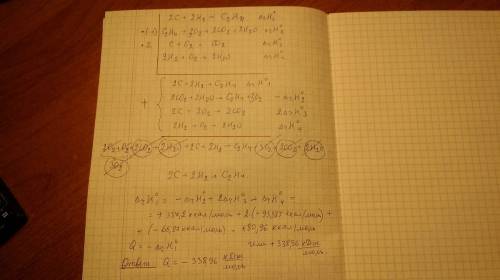 2C + 2H₂ → C₂H₄ ΔrH°₁
·(-1) C₂H₄ + 3O₂ → 2CO₂ + 2H₂O ΔrH°₂
·2 C + O₂ → CO₂ ΔrH°₃
2H₂ + O₂ → 2H₂O ΔrH°₄
2C + 2H₂ → C₂H₄ ΔrH°₁
+ 2CO₂ + 2H₂O → C₂H₄ + 3O₂ - ΔrH°₂
2C + 2O₂ → 2CO₂ 2ΔrH°₃
2H₂ + O₂ → 2H₂O ΔrH°₄
2O₂ + O₂ + 2CO₂ + 2H₂O + 2C + 2H₂ → C₂H₄ + 3O₂ + 2CO₂ + 2H₂O
3O₂
2C + 2H₂ → C₂H₄
ΔrH°₁ = - ΔrH°₂ + 2ΔrH°₃ + ΔrH°₄ =
ккал/моль + 2·( ккал/моль) +
ккал/моль) = ккал/моль
Q = - ΔrH°₁ или + 338,96 кДж/моль
Ответ: Q = - 338,96 кДж/моль